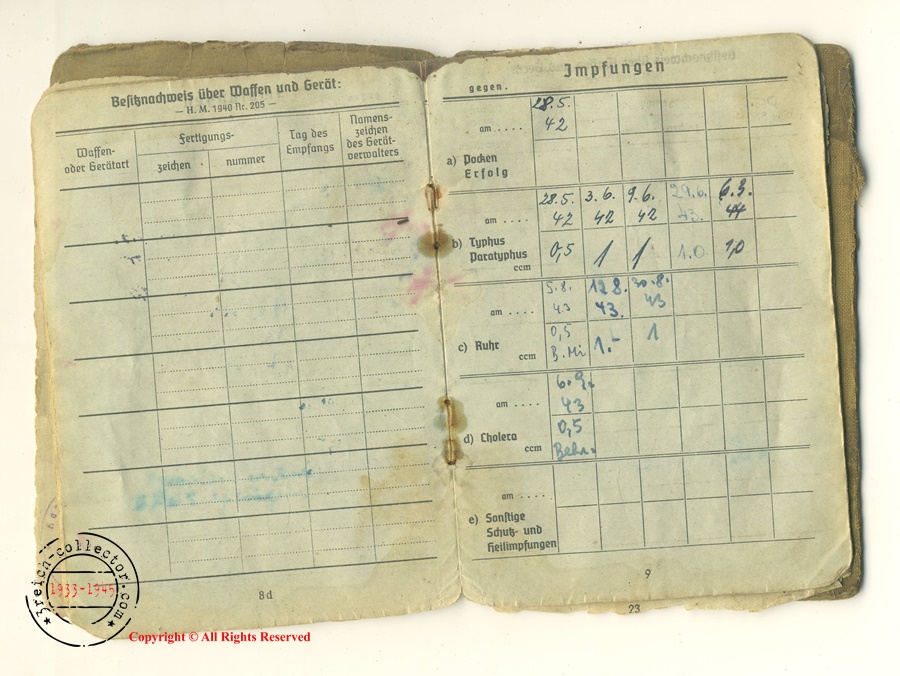 Besitznachweis über Waffen und Gerät:
— H. M. 1940 Nr. 205 —
Waffen-
oder Gerätart
Fertigungs-
zeichen
nummer
Tag des
Empfangs
Namens-
zeichen
des Gerät-
verwalters
8d
Impfungen
gegen.
28.5.
am .... 42
a) Pocken
Erfolg
28.5. 3.6. 9.6. 29.6. 6.3.
am .... 42 42 42 43. 44
b) Typhus
Paratyphus
ccm 0,5 1 1 1.0 1,0
5.8. 12.8. 20.8.
am .... 43 43. 43
c) Ruhr
ccm 0,5 1.- 1
6.9.
am .... 43
d) Cholera
ccm 0,5
Behr.
am .....
e) Sonstige
Schutz- und
Heilimpfungen
9
23
3reich-collector.com
1933-1945
Copyright © All Rights Reserved